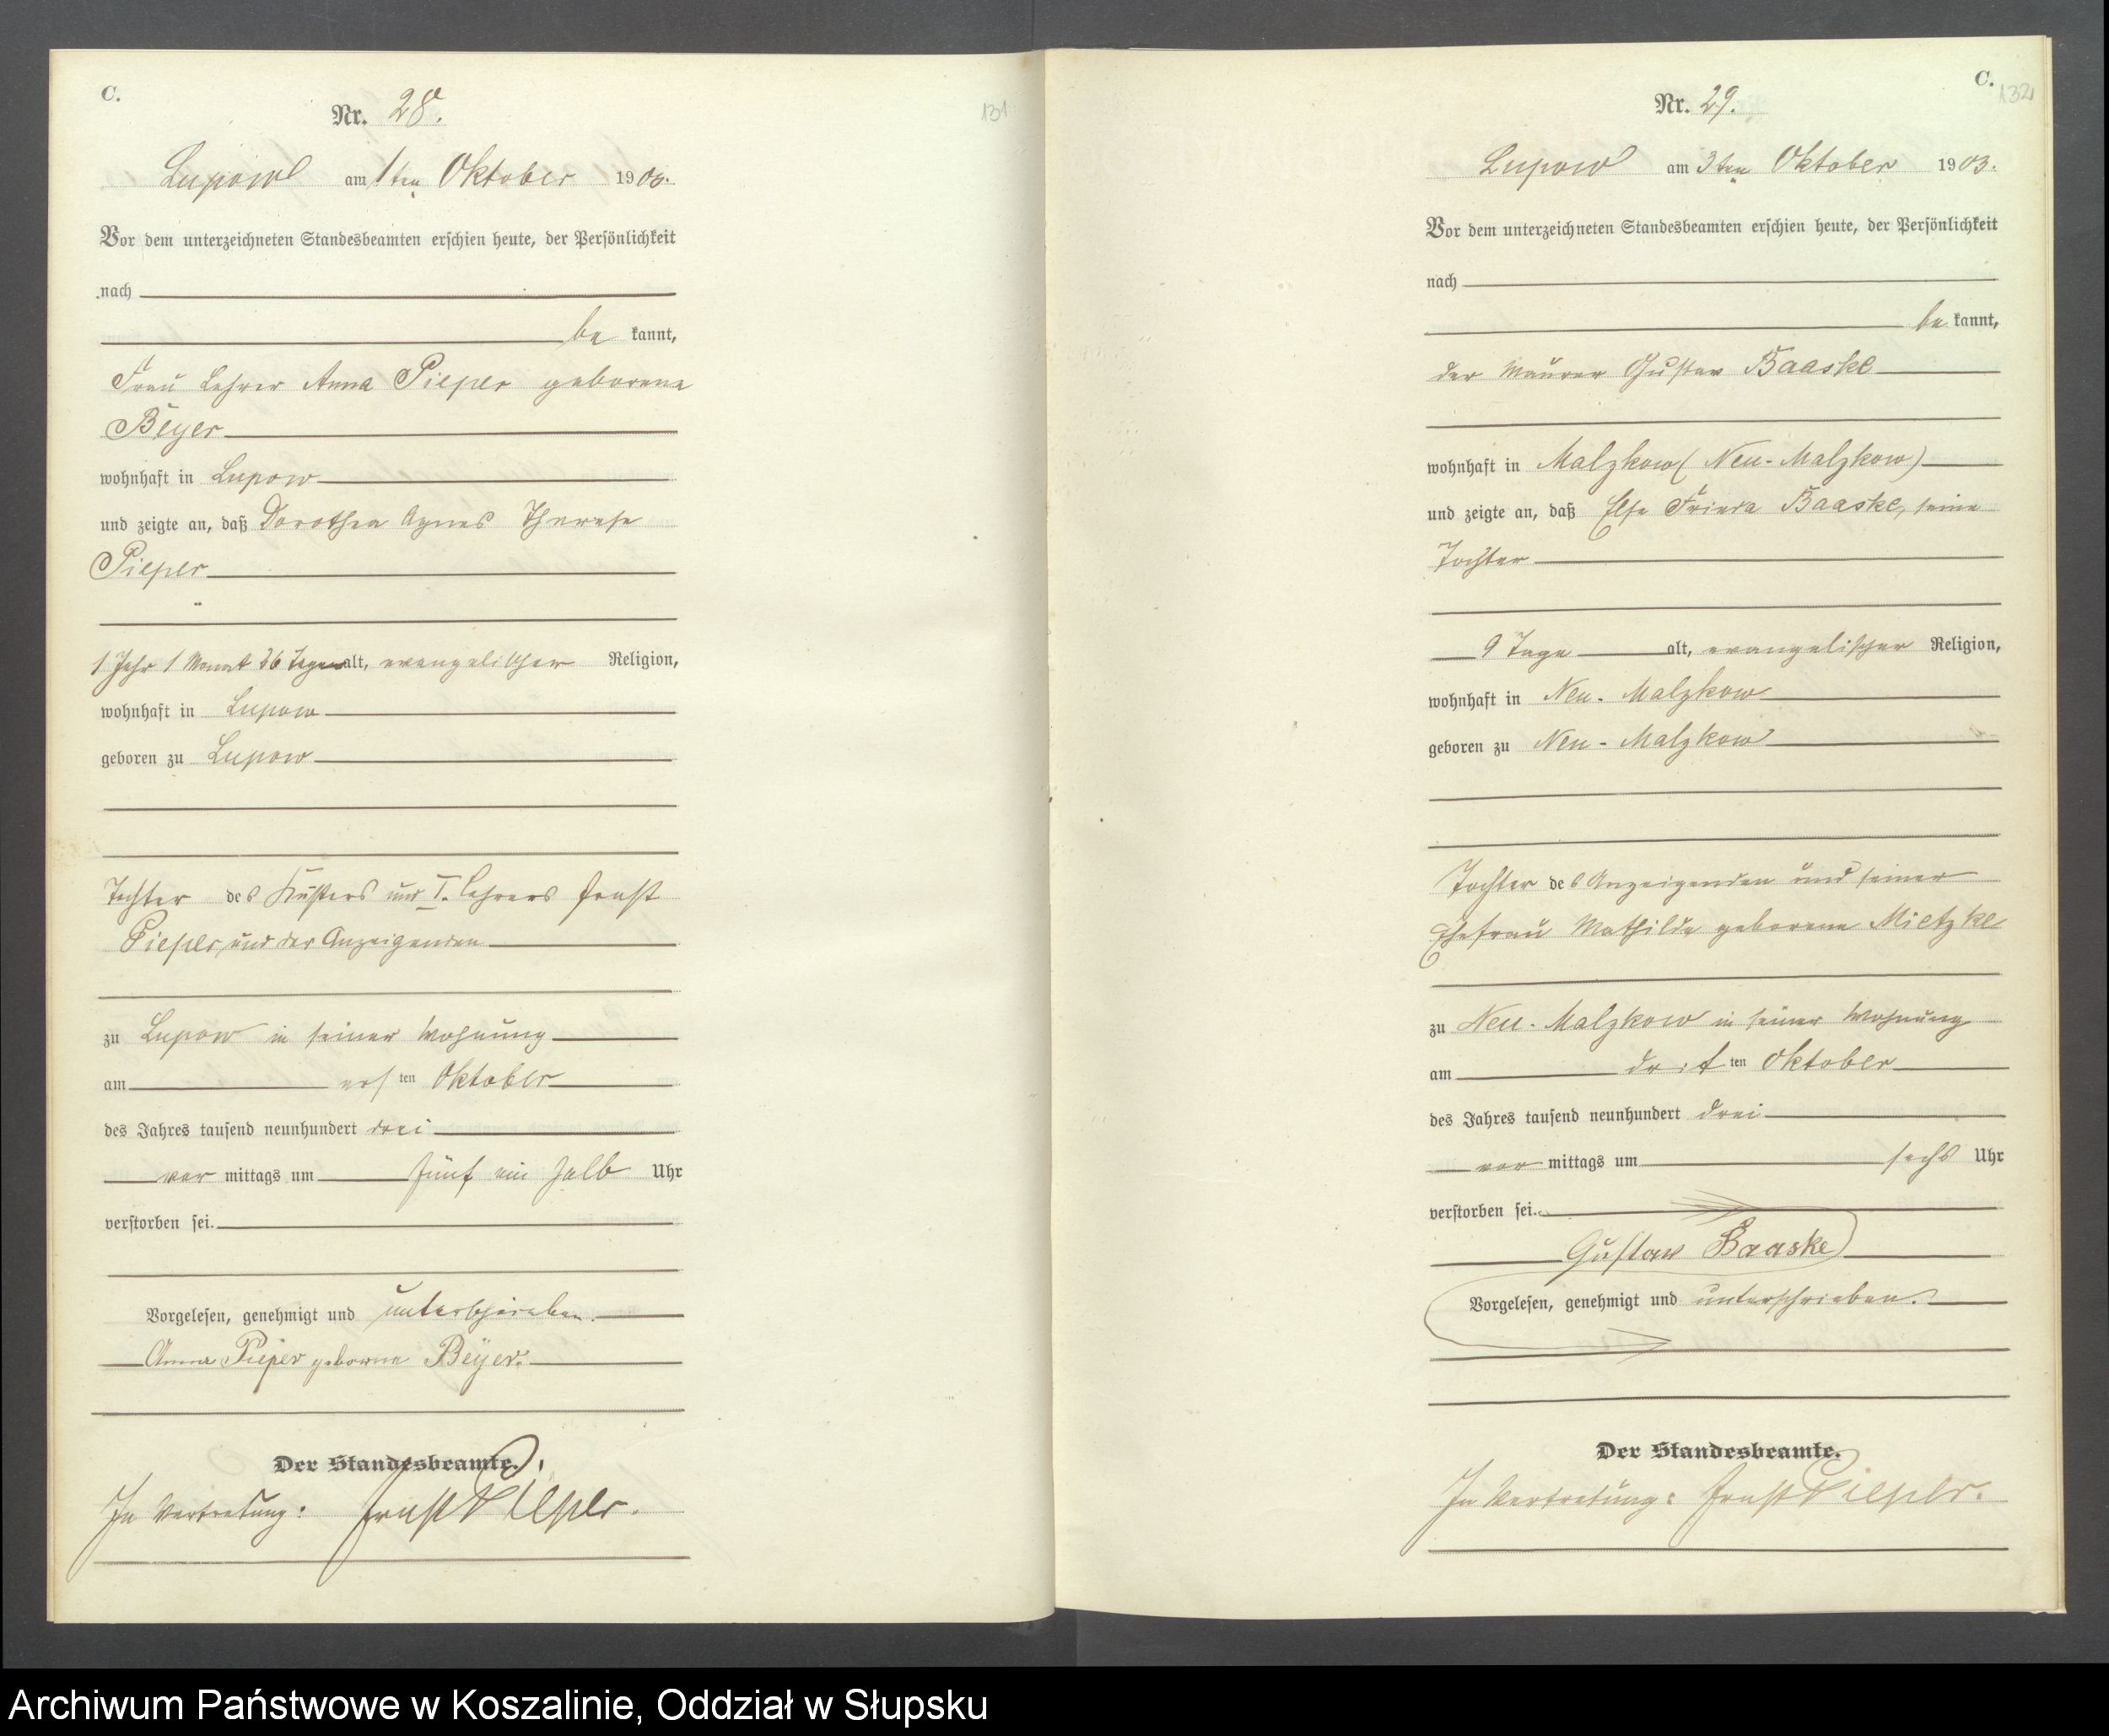 C.
131
Nr. 28.
Lupow am 1ten Oktober 1903.
Vor dem unterzeichneten Standesbeamten erschien heute, der Persönlichkeit
nach
be kannt,
Frau Lehrer Anna Pieper geborene
Beyer
wohnhaft in Lupow
und zeigte an, daß Dorothea Agnes Therese
Pieper
1 Jahr 1 Monat 26 Tage alt, evangelischer Religion,
wohnhaft in Lupow
geboren zu Lupow
Tochter des Küsters und I. Lehrers Ernst
Pieper und der Anzeigenden
zu Lupow in seiner Wohnung
am ersten Oktober
des Jahres tausend neunhundert drei
vor mittags um fünf ein halb Uhr
verstorben sei.
Vorgelesen, genehmigt und unterschrieben.
Anna Pieper geborene Beyer.
Der Standesbeamte.
In Vertretung: Ernst Pieper.
C.
132
Nr. 29.
Lupow am 3ten Oktober 1903.
Vor dem unterzeichneten Standesbeamten erschien heute, der Persönlichkeit
nach
be kannt,
der Maurer Gustav Baaske
wohnhaft in Malzkow (Neu-Malzkow)
und zeigte an, daß Else Frieda Baaske, seine
Tochter
9 Tage alt, evangelischer Religion,
wohnhaft in Neu-Malzkow
geboren zu Neu-Malzkow
Tochter des Anzeigenden und seiner
Ehefrau Mathilde geborene Mietzke
zu Neu-Malzkow in seiner Wohnung
am dritten Oktober
des Jahres tausend neunhundert drei
vor mittags um sechs Uhr
verstorben sei.
Gustav Baaske
Vorgelesen, genehmigt und unterschrieben.
Der Standesbeamte.
In Vertretung: Ernst Pieper.
Archiwum Państwowe w Koszalinie, Oddział w Słupsku